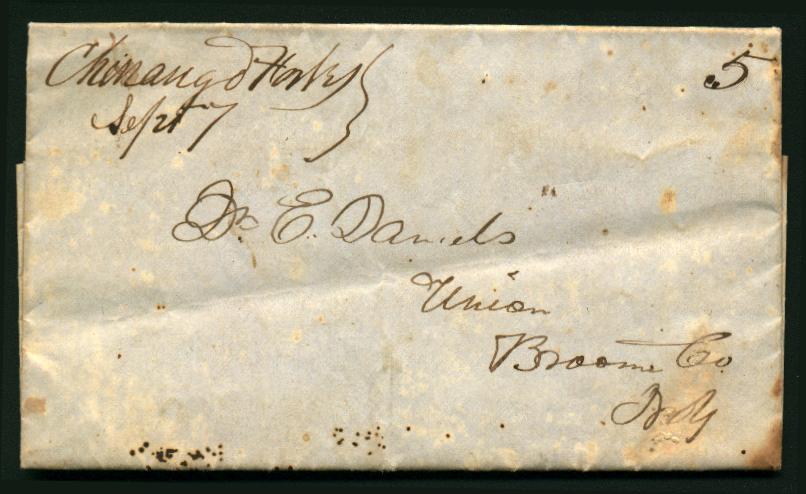 Chenango Forks
5
Sept 7
Dr. E. Daniels
Union
Broome Co
N.Y